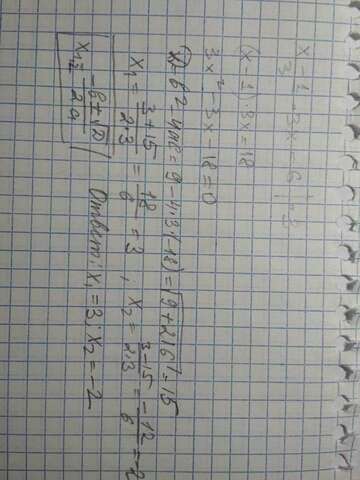 x-1/3 · 3x = 6 | · 3
(x-1)·3x=18
3x²-3x-18=0
D=b²-4ac=9-4·3·(-18)=√9+216=15
x₁=3+15/2·3=18/6=3, x₂=3-15/2·3=-12/6=-2
x₁,₂=-b±√D/2a
Ответ: x₁=3; x₂=-2